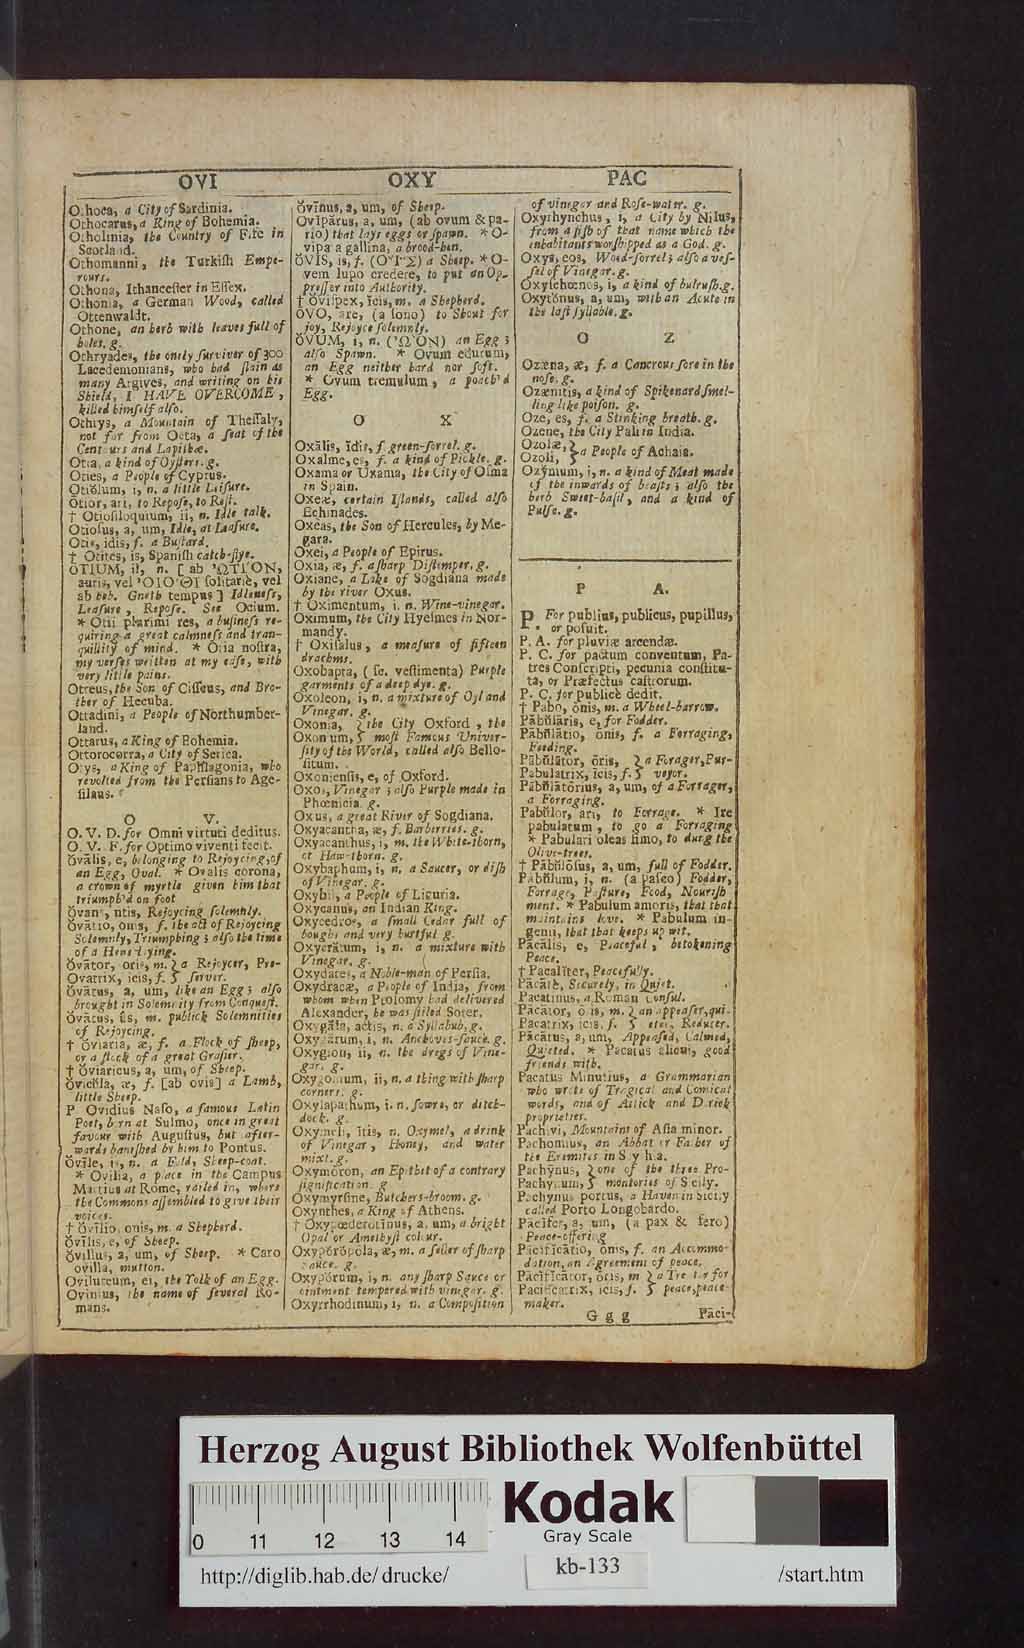 OVI
Othoca, a City of Sardinia.
Othocarus, a King of Bohemia.
Otholinia, the Country of Fife in
Scotland.
Othomanni, the Turkiſh Empe-
rours.
Othona, Ithanceſter in Eſſex.
Othonia, a German Wood, called
Ottenwaldt.
Othone, an herb with leaves full of
holes. g.
Othryades, the onely ſurviver of 300
Lacedemonians, who had ſlain as
many Argives, and writing on his
Shield, I HAVE OVERCOME,
killed himſelf alſo.
Othrys, a Mountain of Theſſaly,
not far from Oeta, a ſeat of the
Centaurs and Lapithæ.
Otia, a kind of Oyſters. g.
Oties, a People of Cyprus.
Otiŏlum, i, n. a little Leiſure.
Otior, ari, to Repoſe, to Reſt.
† Otioſiloquium, ii, n. Idle talk.
Otioſus, a, um, Idle, at Leaſure.
Otis, idis, f. a Buſtard.
† Otites, is, Spaniſh catch-flye.
ŎTIUM, ii, n. [ ab 'ΩΤΙ'ΟΝ,
auris, vel 'ΟΙΟ'ΘΙ ſolitariè, vel
ab heb. Gneth tempus ] Idleneſs,
Leaſure, Repoſe. See Ocium.
* Otii plurimi res, a buſineſs re-
quiring a great calmneſs and tran-
quillity of mind. * Otia noſtra,
my verſes written at my eaſe, with
very little pains.
Otreus, the Son of Ciſſeus, and Bro-
ther of Hecuba.
Ottadini, a People of Northumber-
land.
Ottarus, a King of Bohemia.
Ottorocorra, a City of Serica.
Otys, a King of Paphlagonia, who
revolted from the Perſians to Age-
ſilaus.
O V.
O. V. D. for Omni virtuti deditus.
O. V. F. for Optimo viventi fecit.
Ŏvālis, e, belonging to Rejoycing, of
an Egg, Oval. * Ovalis corona,
a crown of myrtle given him that
triumph'd on foot
Ŏvans, ntis, Rejoycing ſolemnly.
Ŏvātio, ōnis, f. the act of Rejoycing
Solemnly, Triumphing; alſo the time
of a Hens laying.
Ŏvātor, oris, m. } a Rejoycer, Pre-
Ovatrix, icis, f. } ſerver.
Ŏvātus, a, um, like an Egg; alſo
brought in Solemnity from Conqueſt.
Ŏvātus, ûs, m. publick Solemnities
of Rejoycing.
† Ŏviaria, æ, f. a Flock of ſheep,
or a flock of a great Graſier.
† Ŏviaricus, a, um, of Sheep.
Ŏvicŭla, æ, f. [ab ovis] a Lamb,
little Sheep.
P Ovidius Naſo, a famous Latin
Poet, born at Sulmo, once in great
favour with Auguſtus, but after-
wards baniſhed by him to Pontus.
Ŏvīle, is, n. a Fold, Sheep-coat.
* Ovilia, a place in the Campus
Martius at Rome, railed in, where
the Commons aſſembled to give their
voices.
† Ŏvīlio, onis, m. a Shepherd.
Ŏvīlis, e, of Sheep.
Ŏvillus, a, um, of Sheep. * Caro
ovilla, mutton.
Oviluteum, ei, the Yolk of an Egg.
Ovinius, the name of ſeveral Ro-
mans.
OXY
Ŏvīnus, a, um, of Sheep.
Ovĭpărus, a, um, (ab ovum & pa-
rio) that lays eggs or ſpawn. * O-
vipa a gallina, a brood-hen.
ŎVIS, is, f. (Ο'ΪΣ) a Sheep. * O-
vem lupo credere, to put an Op-
preſſor into Authority.
† Ŏviſpex, ĭcis, m. a Shepherd.
ŎVO, are, (a ſono) to Shout for
joy, Rejoyce ſolemnly.
ŎVUM, i, n. ('ΩΟ'Ν) an Egg;
alſo Spawn. * Ovum edurum,
an Egg neither hard nor ſoft.
* Ovum tremulum, a poach'd
Egg.
O X
Oxălis, ĭdis, f. green-ſorrel. g.
Oxalme, es, f. a kind of Pickle. g.
Oxama or Uxama, the City of Oſma
in Spain.
Oxeæ, certain Iſlands, called alſo
Echinades.
Oxeas, the Son of Hercules, by Me-
gara.
Oxei, a People of Epirus.
Oxia, æ, f. a ſharp Diſtemper. g.
Oxiane, a Lake of Sogdiana made
by the river Oxus.
† Oximentum, i. n. Wine-vinegar.
Oximum, the City Hyelmes in Nor-
mandy.
† Oxiſalus, a meaſure of fifteen
drachms.
Oxobapta, (ſc. veſtimenta) Purple
garments of a deep dye. g.
Oxoleon, i, n. a mixture of Oyl and
Vinegar. g.
Oxonia, } the City Oxford, the
Oxonium, } moſt Famous Univer-
ſity of the World, called alſo Bello-
ſitum.
Oxonienſis, e, of Oxford.
Oxos, Vinegar; alſo Purple made in
Phœnicia. g.
Oxus, a great River of Sogdiana.
Oxyacantha, æ, f. Barberries. g.
Oxyacanthus, i, m. the White-thorn,
or Haw-thorn. g.
Oxybaphum, i, n. a Saucer, or diſh
of Vinegar. g.
Oxybii, a People of Liguria.
Oxycanus, an Indian King.
Oxycedros, a ſmall Cedar full of
boughs and very hurtful g.
Oxycrātum, i, n. a mixture with
Vinegar. g.
Oxydates, a Noble-man of Perſia.
Oxydracæ, a People of India, from
whom when Ptolomy had delivered
Alexander, he was ſtiled Soter.
Oxygăla, actis, n. a Syllabub, g.
Oxygărum, i, n. Anchoves-ſauce. g.
Oxygion, ii, n. the dregs of Vine-
gar. g.
Oxygonium, ii, n. a thing with ſharp
corners. g.
Oxylapathum, i. n. ſowre, or ditch-
dock. g.
Oxymeli, ĭtis, n. Oxymel, a drink
of Vinegar, Honey, and water
mixt. g.
Oxymōron, an Epithet of a contrary
ſignification. g
Oxymyrſine, Butchers-broom. g.
Oxynthes, a King of Athens.
† Oxypœderotinus, a, um, a bright
Opal or Amethyſt colour.
Oxypŏrŏpōla, æ, m. a ſeller of ſharp
ſauce. g.
Oxypŏrum, i, n. any ſharp Sauce or
ointment tempered with vinegar. g.
Oxyrrhodinum, i, n. a Compoſition
PAC
of vinegar and Roſe-water. g.
Oxyrhynchus, i, a City by Nilus,
from a fiſh of that name which the
inhabitants worſhipped as a God. g.
Oxys, eos, Wood-ſorrel; alſo a veſ-
ſel of Vinegar. g.
Oxyſchœnos, i, a kind of bulruſh. g.
Oxytŏnus, a, um, with an Acute in
the laſt ſyllable. g.
O Z
Ozæna, æ, f. a Cancrous ſore in the
noſe. g.
Ozænitis, a kind of Spikenard ſmel-
ling like poiſon. g.
Oze, es, f. a Stinking breath. g.
Ozene, the City Pali in India.
Ozolæ, } a People of Achaia.
Ozoli, }
Ozўmum, i, n. a kind of Meat made
of the inwards of beaſts; alſo the
herb Sweet-baſil, and a kind of
Pulſe. g.
P A.
P. For publius, publicus, pupillus,
or poſuit.
P. A. for pluviæ arcendæ.
P. C. for pactum conventum, Pa-
tres Conſcripti, pecunia conſtitu-
ta, or Præfectus caſtrorum.
P. C. for publicè dedit.
† Pabo, ōnis, m. a Wheel-barrow.
Pābŭlāris, e, for Fodder.
Pābŭlātio, ōnis, f. a Forraging,
Feeding.
Pābŭlātor, ōris, } a Forager, Pur-
Pabulatrix, ĭcis, f. } veyor.
Pābŭlātōrius, a, um, of a Forrager,
a Forraging.
Pabŭlor, ari, to Forrage. * Ire
pabulatum, to go a Forraging
* Pabulari oleas fimo, to dung the
Olive-trees.
† Pābŭlōſus, a, um, full of Fodder.
Pābŭlum, i, n. (a paſco) Fodder,
Forrage, Paſture, Food, Nouriſh
ment. * Pabulum amoris, that that
maintains love. * Pabulum in-
genii, that that keeps up wit.
Pācālis, e, Peaceful, betokening
Peace.
† Pacalĭter, Peacefully.
Pācātè, Securely, in Quiet.
Pacatinus, a Roman Conſul.
Pācātor, oris, m. } an appeaſer, qui-
Pacatrix, icis, f. } eter, Reducer.
Pācātus, a, um, Appeaſed, Calmed,
Quieted. * Pacatus alicui, good
friends with.
Pacatus Minutius, a Grammarian
who wrote of Tragical and Comical
words, and of Attick and Dorick
proprieties.
Pachivi, Mountains of Aſia minor.
Pachomius, an Abbat or Father of
the Eremites in Scythia.
Pachўnus, } one of the three Pro-
Pachynum, } montories of Sicily.
Pachynus portus, a Haven in Sicily
called Porto Longobardo.
Pācĭfer, a, um, (a pax & fero)
Peace-offering
Pācĭfĭcātio, ōnis, f. an Accommo-
dation, an Agreement of peace.
Pācĭfĭcātor, ōris, m } a Treator for
Pacificatrix, icis, f. } peace, peace-
maker.
G g g
Păci-
Herzog August Bibliothek Wolfenbüttel
0 11 12 13 14
Kodak
Gray Scale
http://diglib.hab.de/drucke/
kb-133
/start.htm